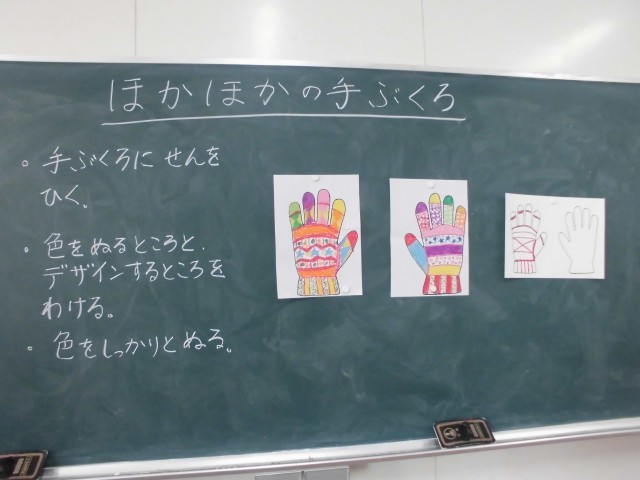 ほかほかの手ぶくろ
・手ぶくろに せんを
ひく。
・色をぬるところと、
デザインするところを
わける。
・色をしっかりとぬる。